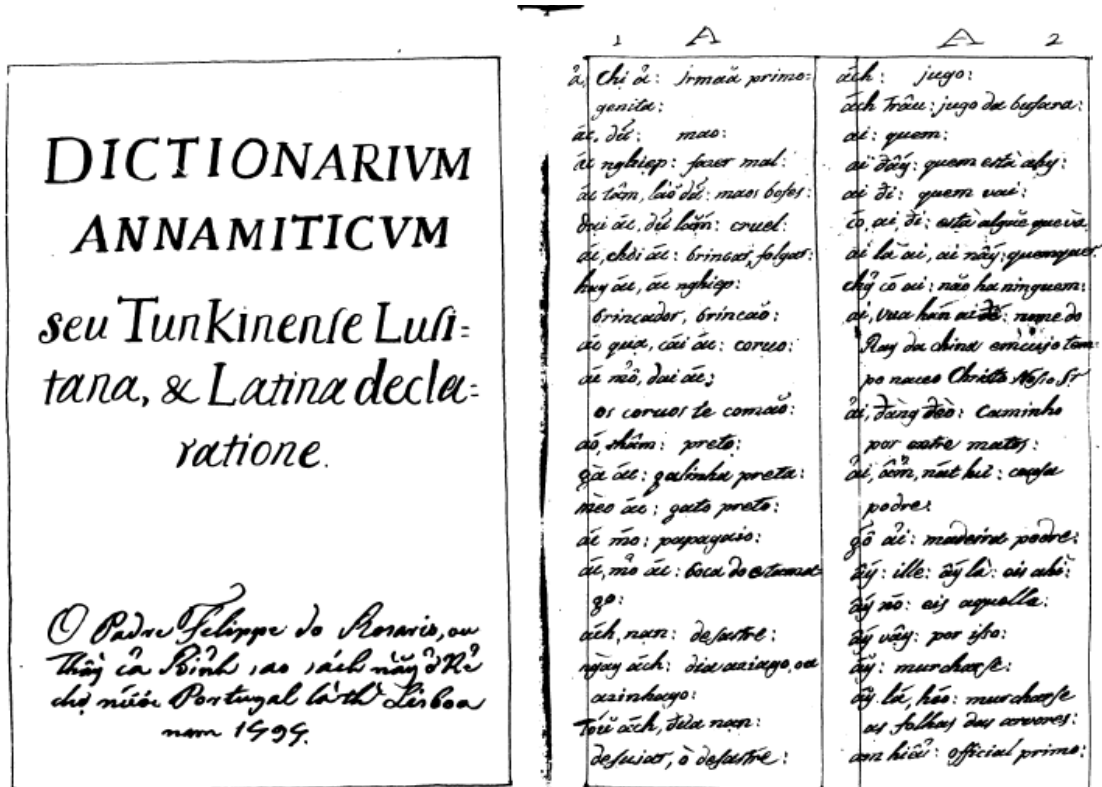 DICTIONARIVM
ANNAMITICVM
seu Tunkinenſe Luſi=
tana, & Latina decla=
ratione.
O Padre Felippe do Rosario, ou
Thầy cả Bỉnh sao sách nầy ở Kẻ
chợ nước Portugal là thị Lisboa
nam 1799.
1 A
ả, chị ả: irmaã primo=
genita:
ác, dữ: mao:
ác nghiẹp: fazer mal:
ác tâm, lào dữ: maos bofes:
đại ác, dữ lắm: cruel:
ác, chơi ác: brincar, folgar:
hay ác, ác nghiẹp:
brincador, brincaõ:
ác qua, cái ác: coruo:
ác mổ, đại ác;
os coruos te comaõ:
aó, thâm: preto:
gà ác: galinha preta:
mèo ác: gato preto:
ác mo: papagaio:
ác, mỏ ác: boca do estama=
go:
ách, nạn: desastre:
ngày ách: dia aziago, ou
azinhago:
ách, đừa nạn:
desuiar, ò desastre:
A 2
ách: jugo:
ách trâu: jugo da bufara:
ai: quem:
ai đấy: quem està ahy:
ai đi: quem vai:
có, ai, đi: està alguẽ que và
ai là ai, ai nấy: quemquer:
chẳng có ai: não ha ninguem:
ai, vua hán ai đế: nome do
Ray da china em cujo tem=
po naceo Christo Noſso Sr
ải, đàng đèo: Caminho
por entre matos:
ải, nát hư: cousa
podre:
gỗ ải: madeira podre:
ấy: ille: ấy là: eis ahi:
ấy nó: eis aquella:
ấy vậy: por iſso:
ấy: murcharſe:
ấy lá, héo: murcharſe
as folhas das arvores:
am hiểu: official primo: